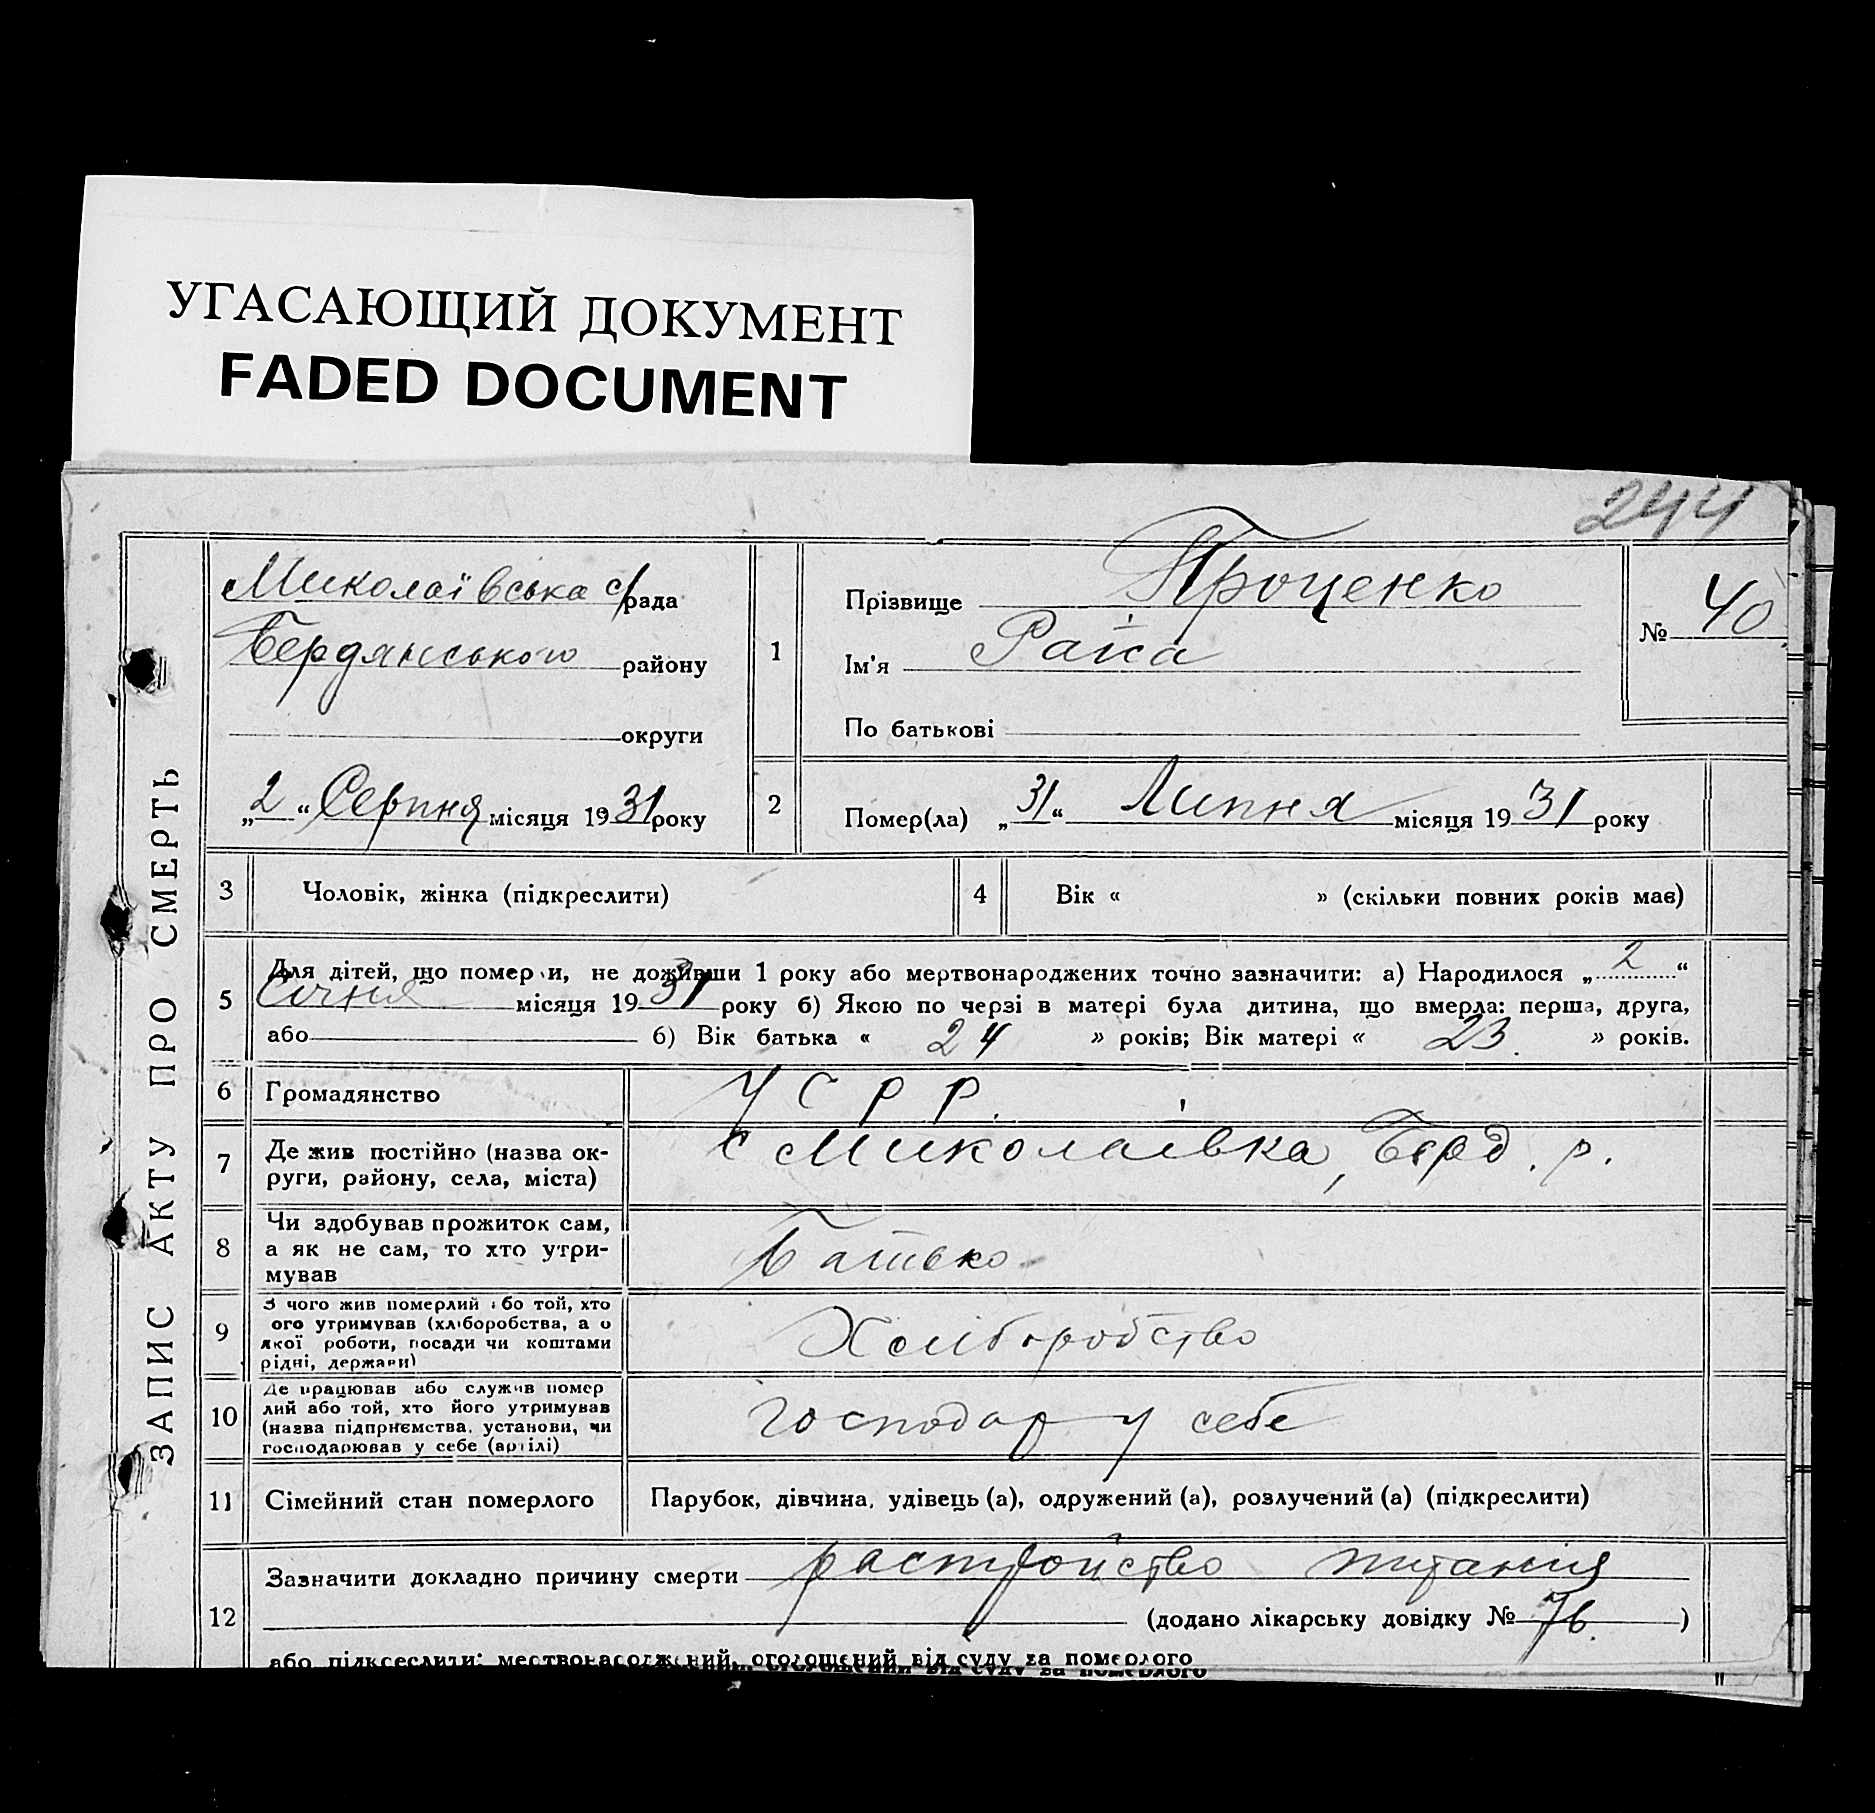 УГАСАЮЩИЙ ДОКУМЕНТ
FADED DOCUMENT
244
ЗАПИС АКТУ ПРО СМЕРТЬ
Миколаївська с/рада
Бердянського району
округи
„2“ Серпня місяця 1931 року
1
Прізвище Проценко
Ім'я Раїса
По батькові
№ 40
2
Помер(ла) „31“ Липня місяця 1931 року
3 Чоловік, жінка (підкреслити)
4 Вік « » (скільки повних років має)
5
Для дітей, що померли, не доживши 1 року або мертвонароджених точно зазначити: а) Народилося „2“
Січня місяця 1931 року б) Якою по черзі в матері була дитина, що вмерла: перша, друга,
або б) Вік батька « 24 » років; Вік матері « 23 » років.
6 Громадянство УСРР.
7
Де жив постійно (назва ок-
руги, району, села, міста)
с Миколаівка, Берд. р.
8
Чи здобував прожиток сам,
а як не сам, то хто утри-
мував
Батько
9
З чого жив померлий або той, хто
ого утримував (хліборобства, а о
якої роботи, посади чи коштами
рідні, держави)
Хліборобство
10
Де працював або служив помер
лий або той, хто його утримував
(назва підприємства, установи, чи
господарював у себе (артілі)
господар у себе
11 Сімейний стан померлого
Парубок, дівчина, удівець (а), одружений (а), розлучений (а) (підкреслити)
12
Зазначити докладно причину смерти растройство питания
(додано лікарську довідку № 76. )
або підкреслити: мертвонароджений, оголошений від суду за померлого